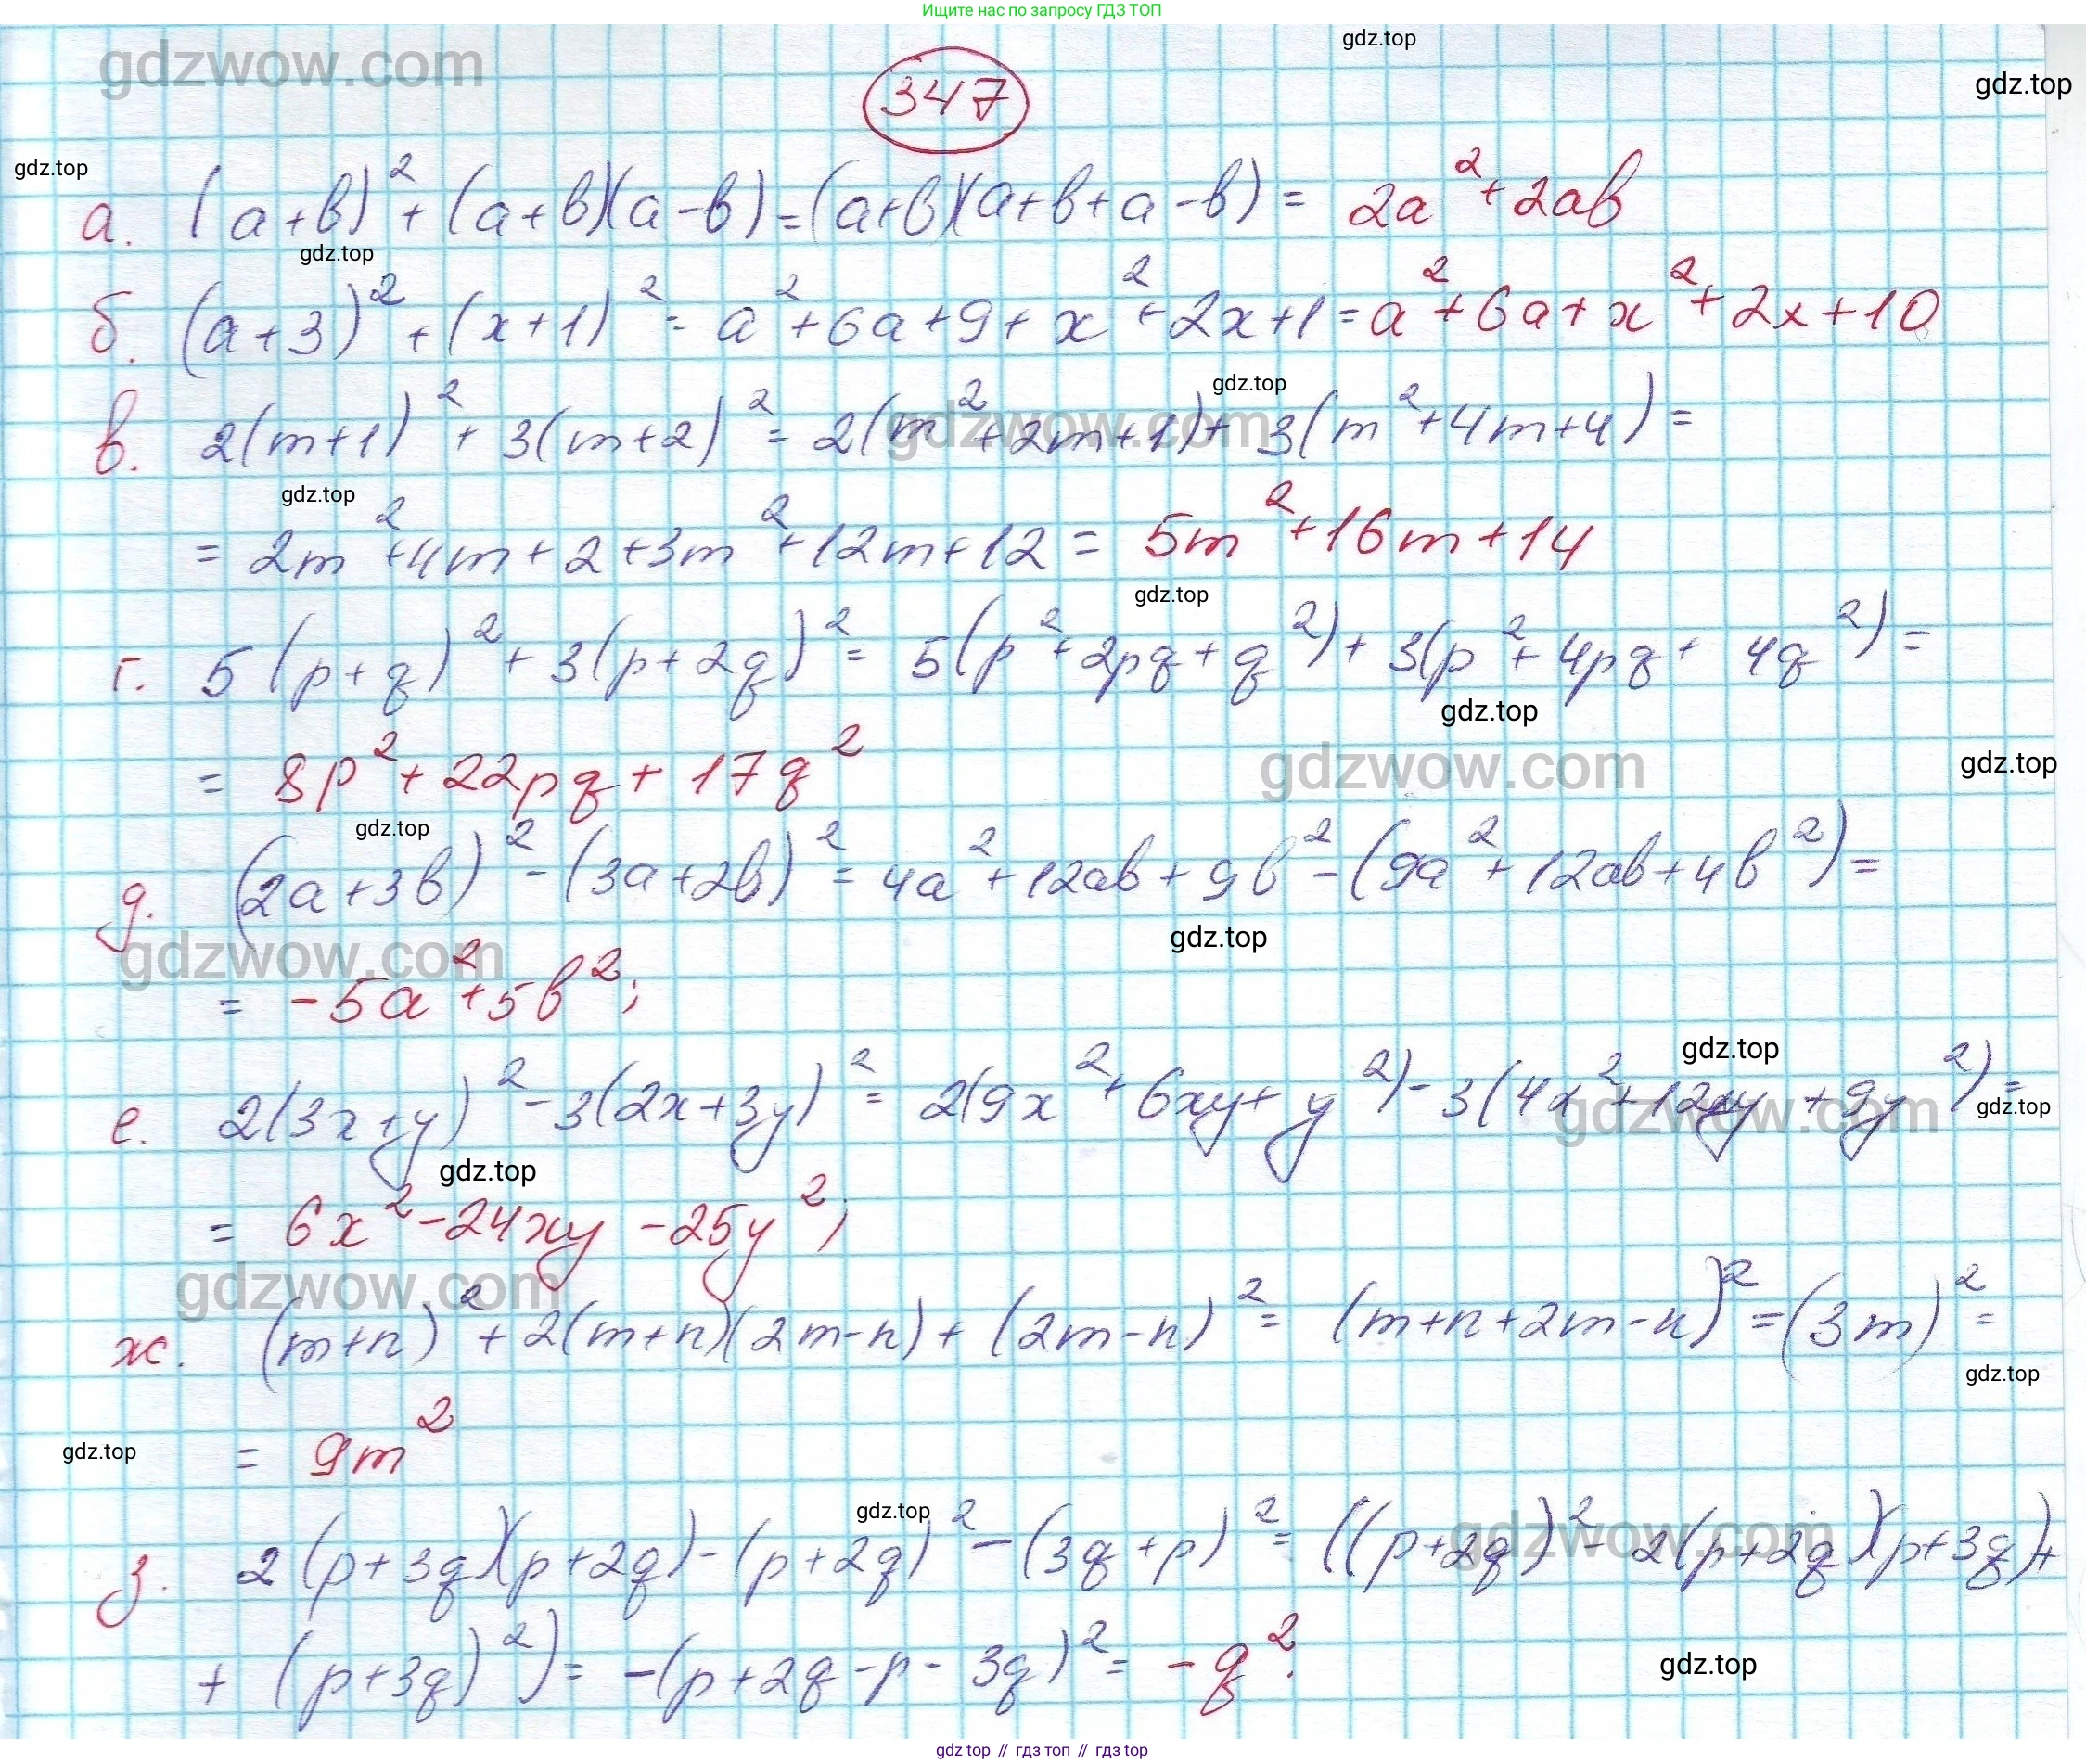 Ищите нас по запросу ГДЗ ТОП
gdz.top
gdzwow.com
gdz.top
347
gdz.top
а. (a+b)² + (a+b)(a-b) = (a+b)(a+b+a-b) = 2a² + 2ab
gdz.top
б. (a+3)² + (x+1)² = a² + 6a + 9 + x² + 2x + 1 = a² + 6a + x² + 2x + 10
gdz.top
в. 2(m+1)² + 3(m+2)² = 2(m² + 2m + 1) + 3(m² + 4m + 4) =
gdzwow.com
gdz.top
= 2m² + 4m + 2 + 3m² + 12m + 12 = 5m² + 16m + 14
gdz.top
г. 5(p+q)² + 3(p+2q)² = 5(p² + 2pq + q²) + 3(p² + 4pq + 4q²) =
gdz.top
= 8p² + 22pq + 17q²
gdzwow.com
gdz.top
gdz.top
д. (2a+3b)² - (3a+2b)² = 4a² + 12ab + 9b² - (9a² + 12ab + 4b²) =
gdz.top
gdzwow.com
= -5a² + 5b²;
gdz.top
е. 2(3x+y)² - 3(2x+3y)² = 2(9x² + 6xy + y²) - 3(4x² + 12xy + 9y²) =
gdzwow.com
gdz.top
gdz.top
= 6x² - 24xy - 25y²;
gdzwow.com
ж. (m+n)² + 2(m+n)(2m-n) + (2m-n)² = (m+n+2m-n)² = (3m)² =
gdz.top
= 9m²
gdz.top
gdz.top
з. 2(p+3q)(p+2q) - (p+2q)² - (3q+p)² = ((p+2q)² - 2(p+2q)(p+3q) +
gdzwow.com
+ (p+3q)²) = -(p+2q-p-3q)² = -q².
gdz.top
gdz top // гдз топ // гдз top